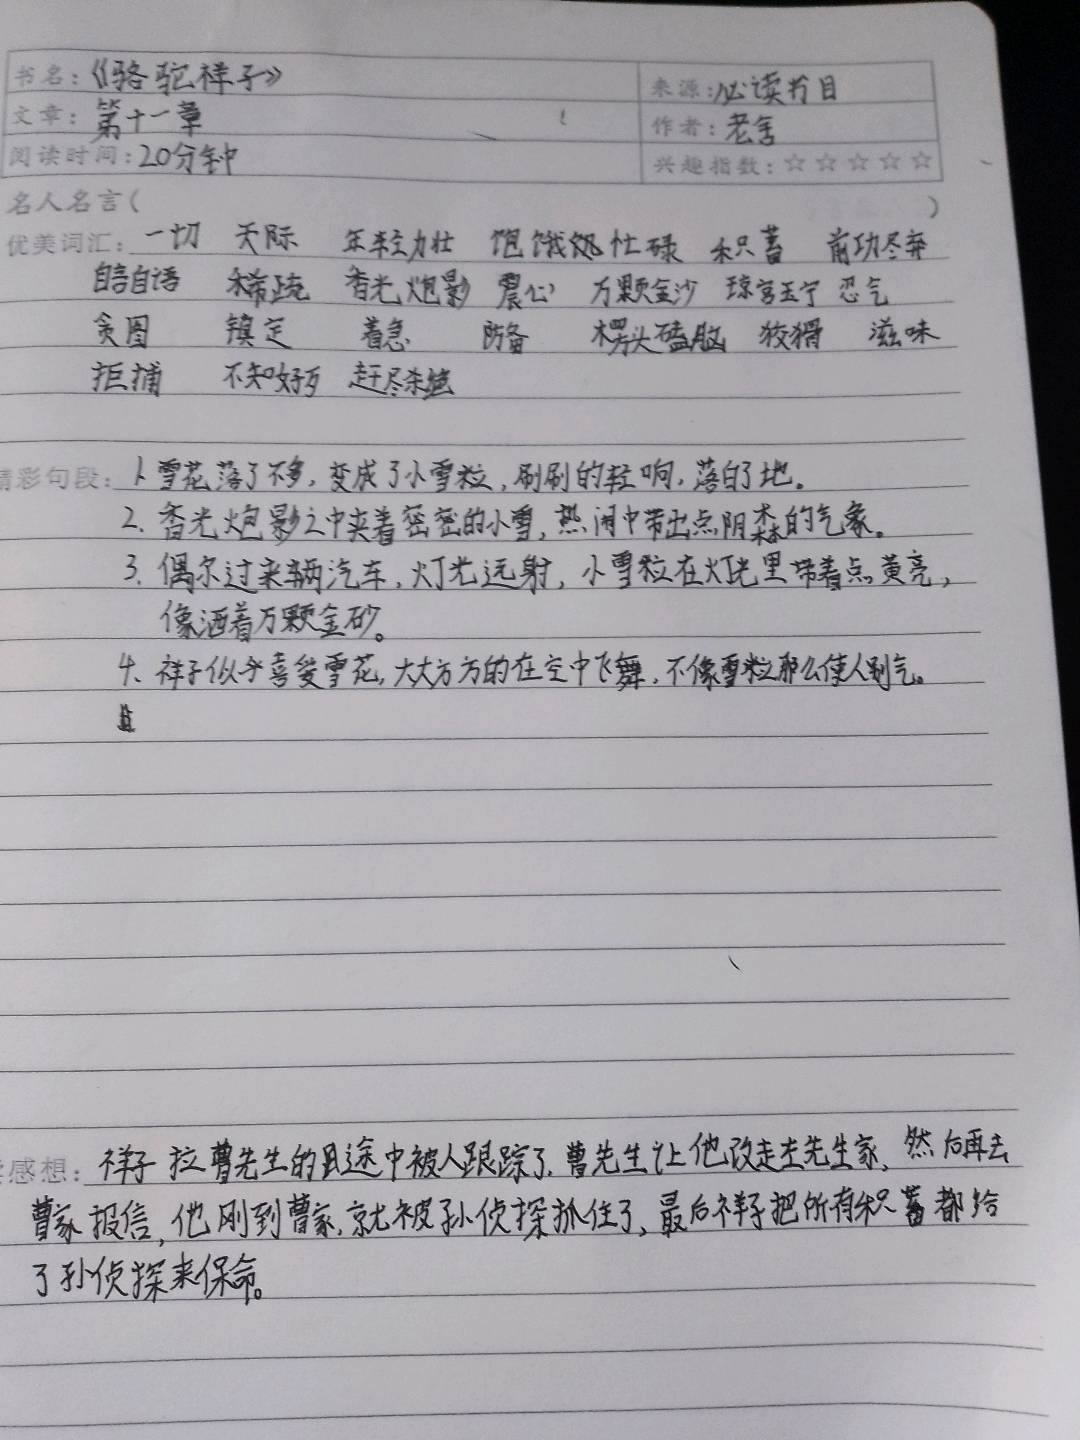 书名:《骆驼祥子》 来源:必读书目
文章:第十一章 作者:老舍
阅读时间:20分钟 兴趣指数:☆☆☆☆☆
名人名言( )
优美词汇:一切 天际 年轻力壮 饱饿 忙碌 积蓄 前功尽弃
自言自语 稀疏 香光炮影 震心 万颗金沙 琼宫玉宇 忍气
贪图 镇定 着急 防备 楞头磕脑 狡猾 滋味
拒捕 不知好歹 赶尽杀绝
精彩句段:1.雪花落了不多,变成了小雪粒,刷刷的轻响,落白了地。
2.香光炮影之中夹着密密的小雪,热闹中带出点阴森的气象。
3.偶尔过来辆汽车,灯光远射,小雪粒在灯光里带着点黄亮,
像洒着万颗金砂。
4.祥子似乎喜爱雪花,大大方方的在空中飞舞,不像雪粒那么使人别气。
感想:祥子拉曹先生的途中被人跟踪了,曹先生让他改走左先生家,然后再去
曹家报信,他刚到曹家,就被孙侦探抓住了,最后祥子把所有积蓄都给
了孙侦探来保命。